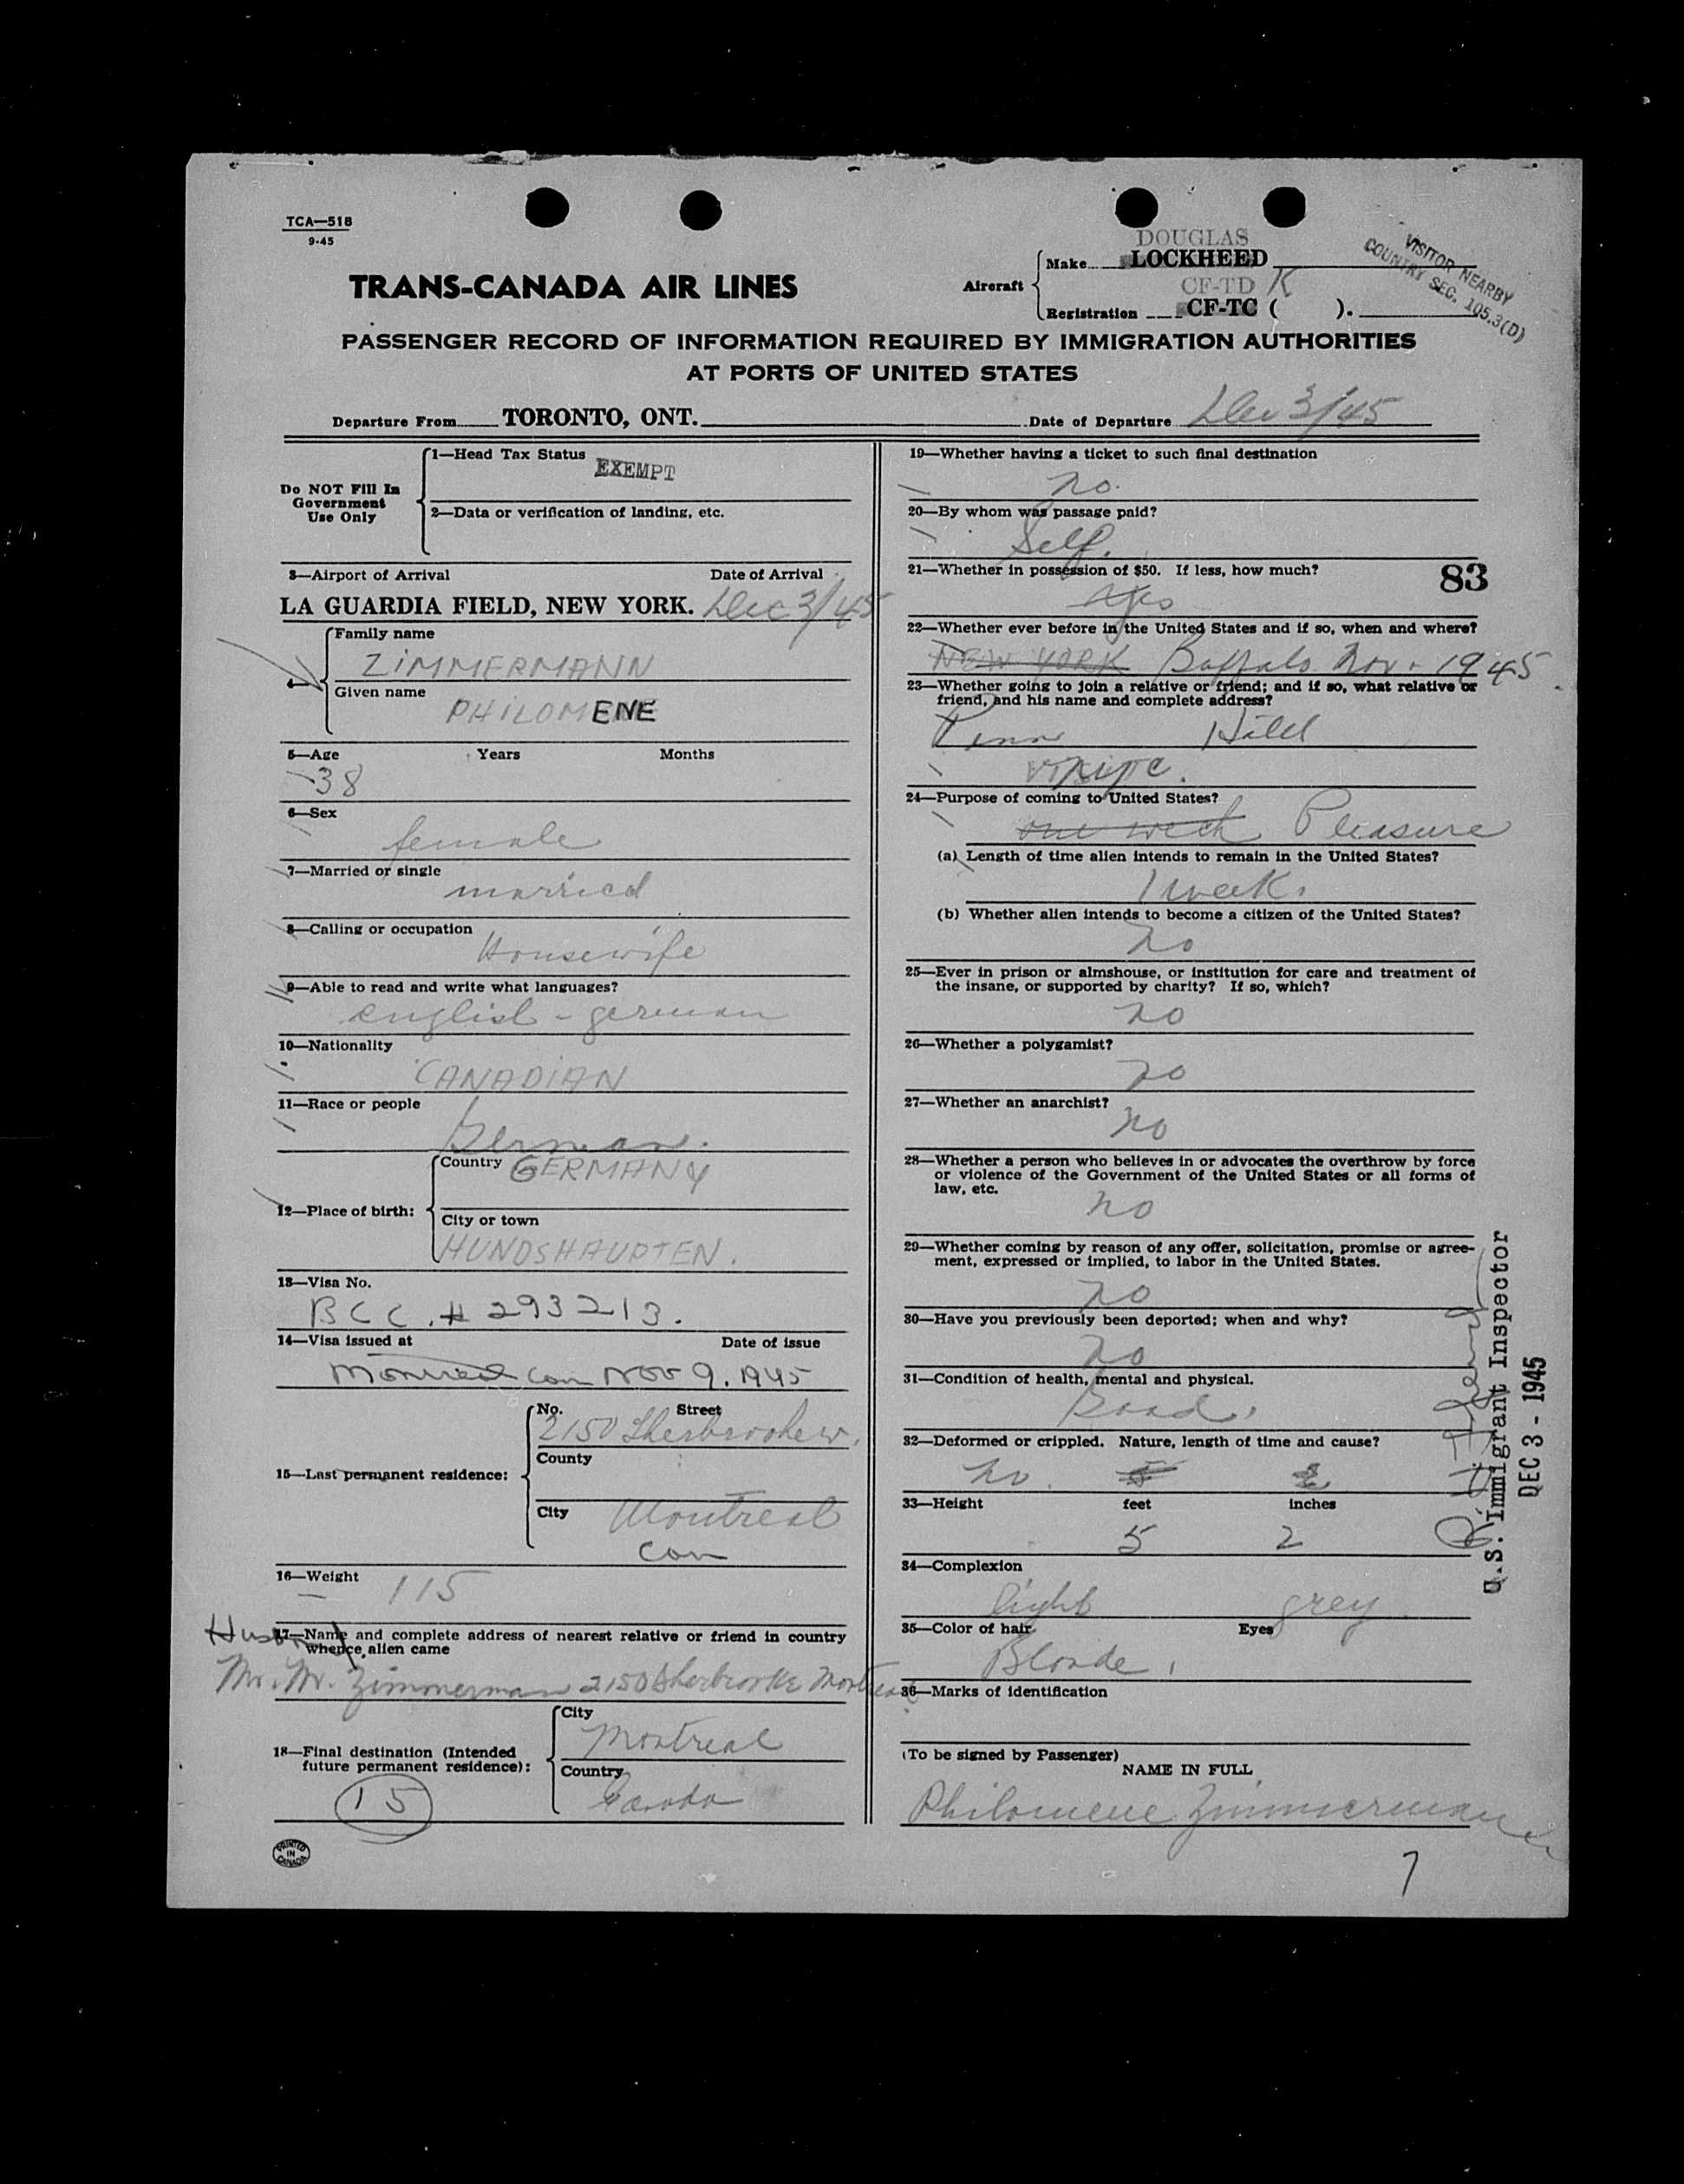 TCA—518
9-45
TRANS-CANADA AIR LINES
Aircraft
DOUGLAS
Make LOCKHEED
CF-TD K
Registration CF-TC ( ).
VISITOR NEARBY
COUNTRY SEC. 105.3(D)
PASSENGER RECORD OF INFORMATION REQUIRED BY IMMIGRATION AUTHORITIES
AT PORTS OF UNITED STATES
Departure From TORONTO, ONT. Date of Departure Dec 3/45
Do NOT Fill In
Government
Use Only
1—Head Tax Status
EXEMPT
2—Data or verification of landing, etc.
3—Airport of Arrival Date of Arrival
LA GUARDIA FIELD, NEW YORK. Dec 3/45
4—
Family name
ZIMMERMANN
Given name
PHILOMENE
5—Age Years Months
38
6—Sex
female
7—Married or single
married
8—Calling or occupation
Housewife
9—Able to read and write what languages?
english - german
10—Nationality
CANADIAN
11—Race or people
German.
12—Place of birth:
Country GERMANY
City or town
HUNDSHAUPTEN.
13—Visa No.
BCC. # 293213.
14—Visa issued at Date of issue
Montreal Can Nov 9. 1945
15—Last permanent residence:
No. Street
2150 Sherbrooke W.
County
City Montreal
Can
16—Weight
115
Husband
17—Name and complete address of nearest relative or friend in country
whence alien came
Mr. W. Zimmerman 2150 Sherbrooke Montreal
18—Final destination (Intended
future permanent residence):
15
City
Montreal
Country
Canada
PRINTED
IN
CANADA
19—Whether having a ticket to such final destination
no.
20—By whom was passage paid?
Self.
21—Whether in possession of $50. If less, how much?
83
yes
22—Whether ever before in the United States and if so, when and where?
NEW YORK Buffalo Nov. 1945
23—Whether going to join a relative or friend; and if so, what relative or
friend, and his name and complete address?
Penn
24—Purpose of coming to United States?
one week Pleasure
(a) Length of time alien intends to remain in the United States?
1 week.
(b) Whether alien intends to become a citizen of the United States?
no
25—Ever in prison or almshouse, or institution for care and treatment of
the insane, or supported by charity? If so, which?
no
26—Whether a polygamist?
no
27—Whether an anarchist?
no
28—Whether a person who believes in or advocates the overthrow by force
or violence of the Government of the United States or all forms of
law, etc.
no
29—Whether coming by reason of any offer, solicitation, promise or agree-
ment, expressed or implied, to labor in the United States.
no
30—Have you previously been deported; when and why?
no
31—Condition of health, mental and physical.
Good.
32—Deformed or crippled. Nature, length of time and cause?
no. 5 2
33—Height feet inches
5 2
34—Complexion
light grey
35—Color of hair Eyes
Blonde,
36—Marks of identification
(To be signed by Passenger)
NAME IN FULL
Philomene Zimmermann
7
U.S. Immigrant Inspector
DEC 3 - 1945